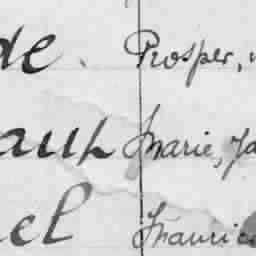 de. Prosper,
auh Marie, Ja
el Mauric